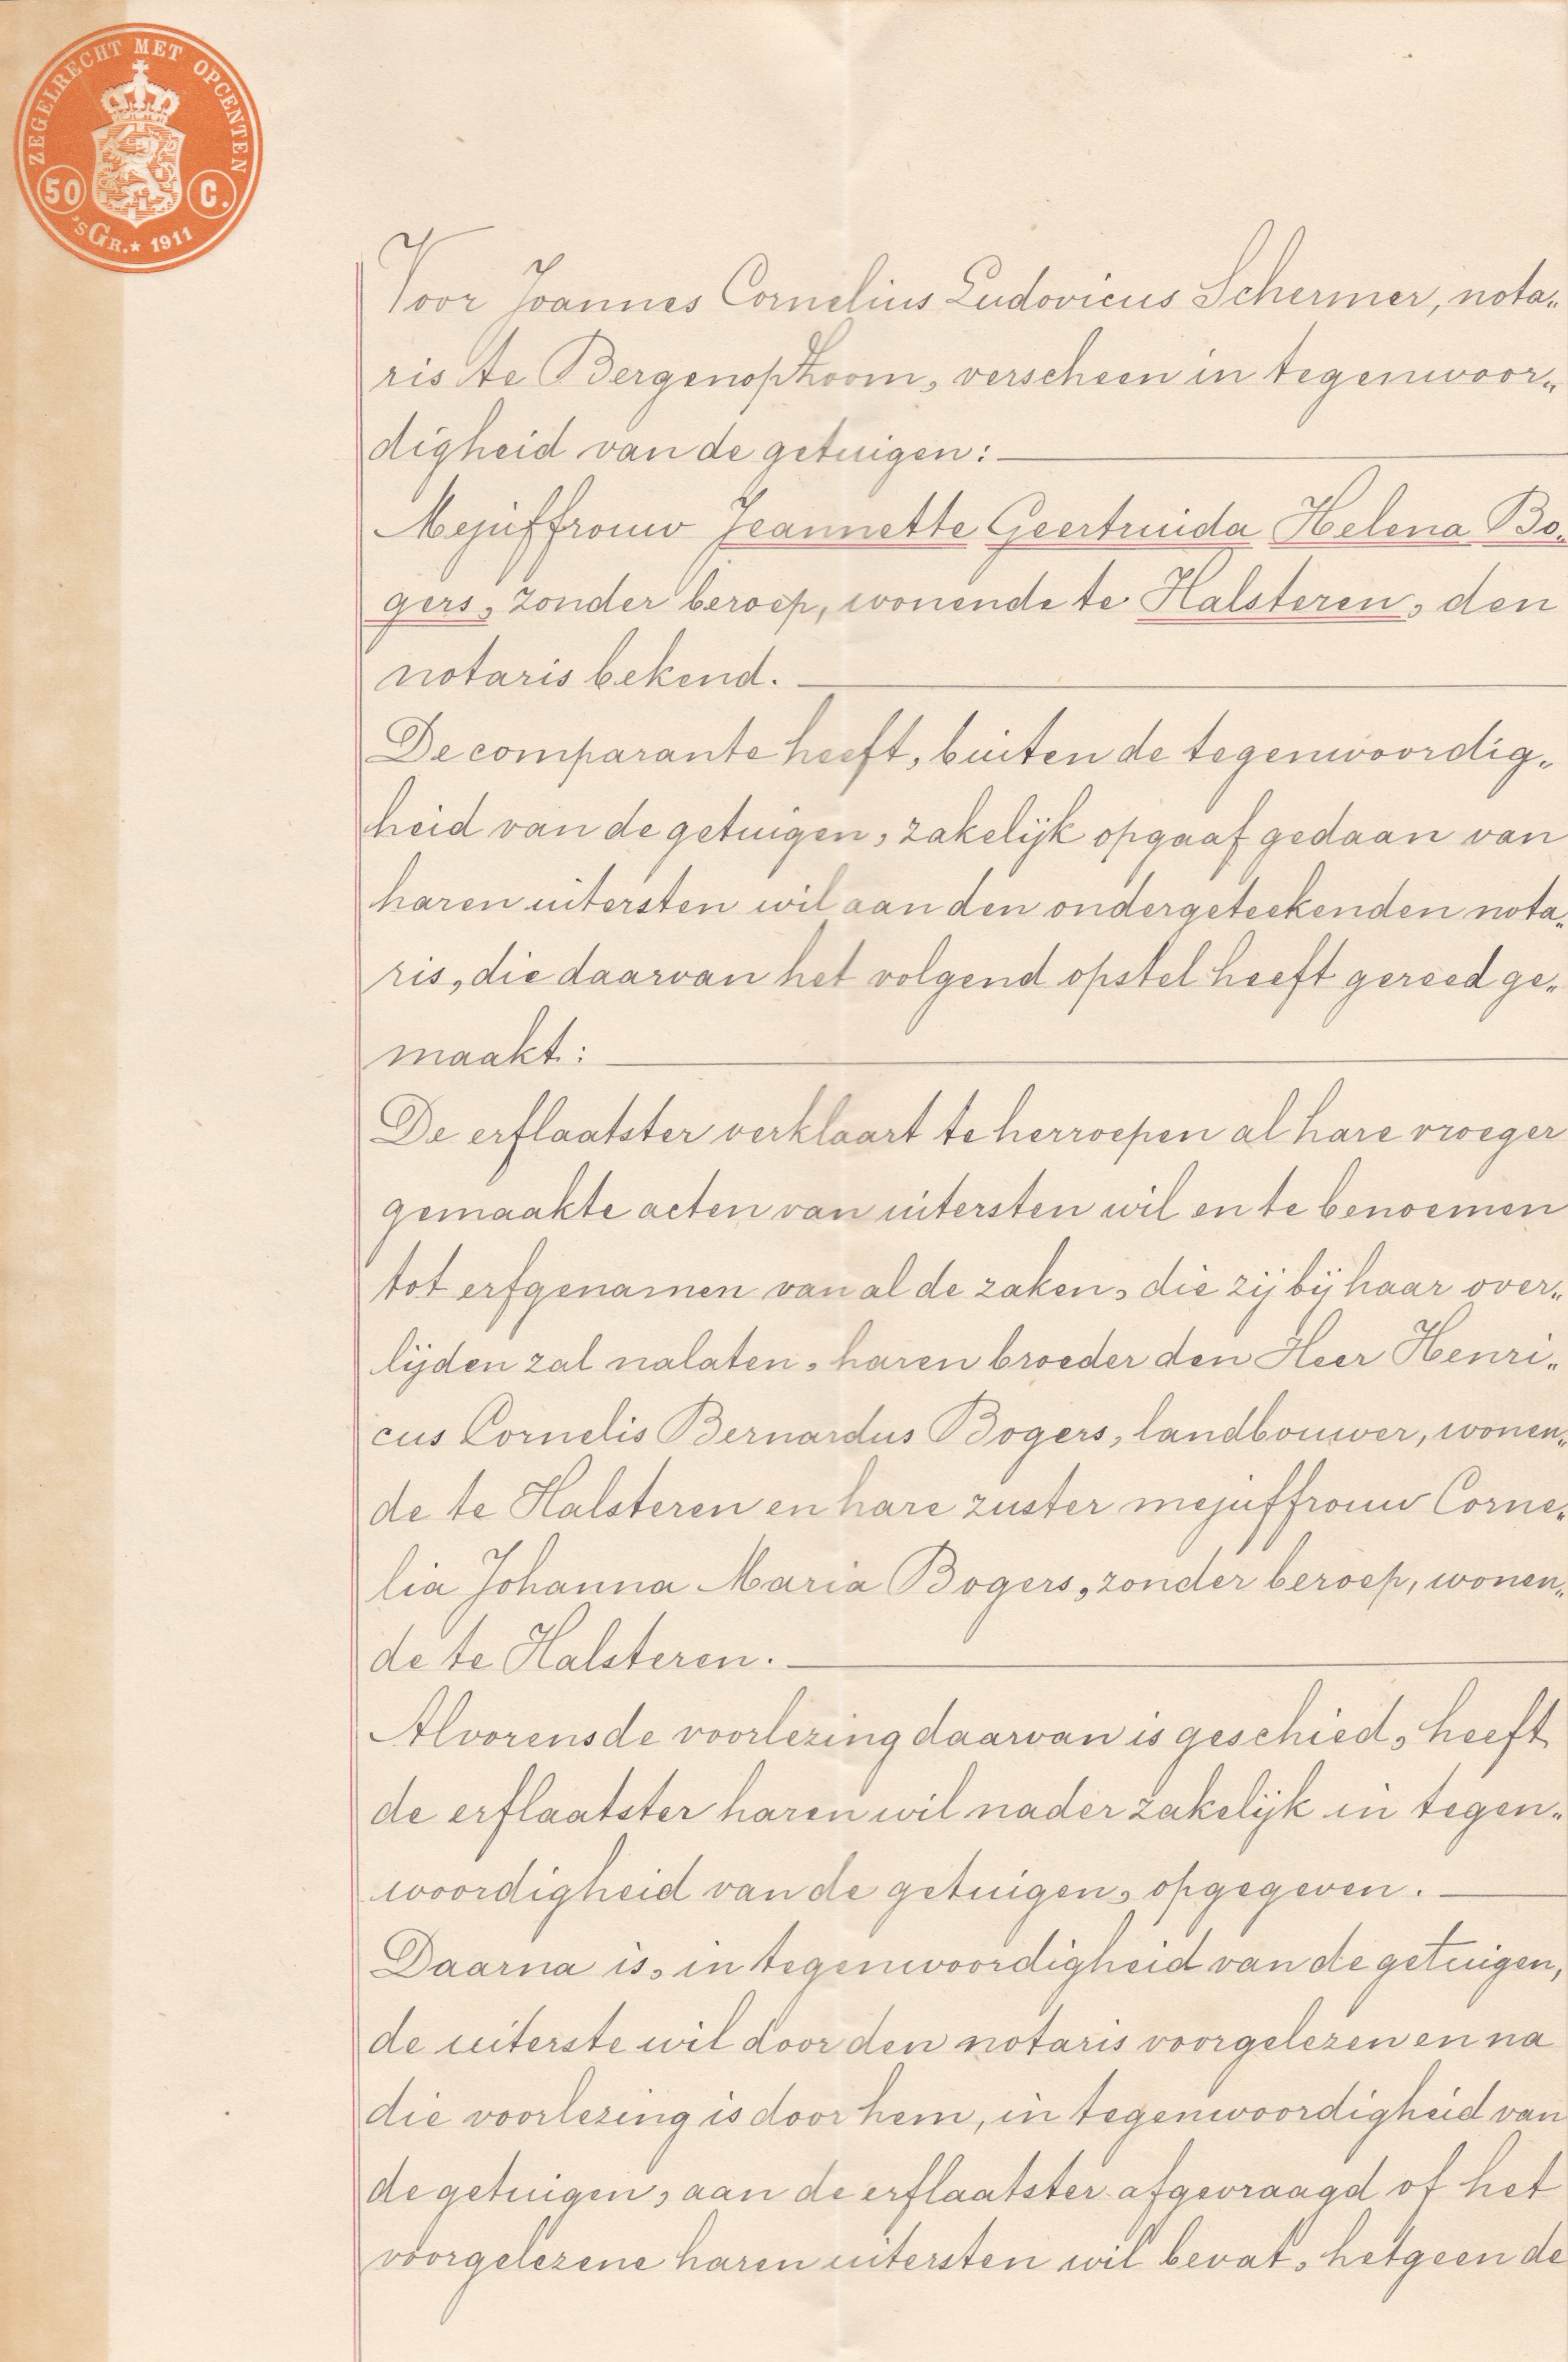 ZEGELRECHT MET OPCENTEN
50 C.
'sGR.★ 1911
Voor Joannes Cornelius Ludovicus Schermer, nota„
ris te Bergenopzoom, verscheen in tegenwoor„
digheid van de getuigen:
Mejuffrouw Jeannette Geertruida Helena Bo„
gers, zonder beroep, wonende te Halsteren, den
notaris bekend.
De comparante heeft, buiten de tegenwoordig„
heid van de getuigen, zakelijk opgaaf gedaan van
haren uitersten wil aan den ondergeteekenden nota„
ris, die daarvan het volgend opstel heeft gereed ge„
maakt:
De erflaatster verklaart te herroepen al hare vroeger
gemaakte acten van uitersten wil en te benoemen
tot erfgenamen van al de zaken, die zij bij haar over„
lijden zal nalaten, haren broeder den Heer Henri„
cus Cornelis Bernardus Bogers, landbouwer, wonen„
de te Halsteren en hare zuster mejuffrouw Corne„
lia Johanna Maria Bogers, zonder beroep, wonen„
de te Halsteren.
Alvorens de voorlezing daarvan is geschied, heeft
de erflaatster haren wil nader zakelijk in tegen„
woordigheid van de getuigen, opgegeven.
Daarna is, in tegenwoordigheid van de getuigen,
de uiterste wil door den notaris voorgelezen en na
die voorlezing is door hem, in tegenwoordigheid van
de getuigen, aan de erflaatster afgevraagd of het
voorgelezene haren uitersten wil bevat, hetgeen de